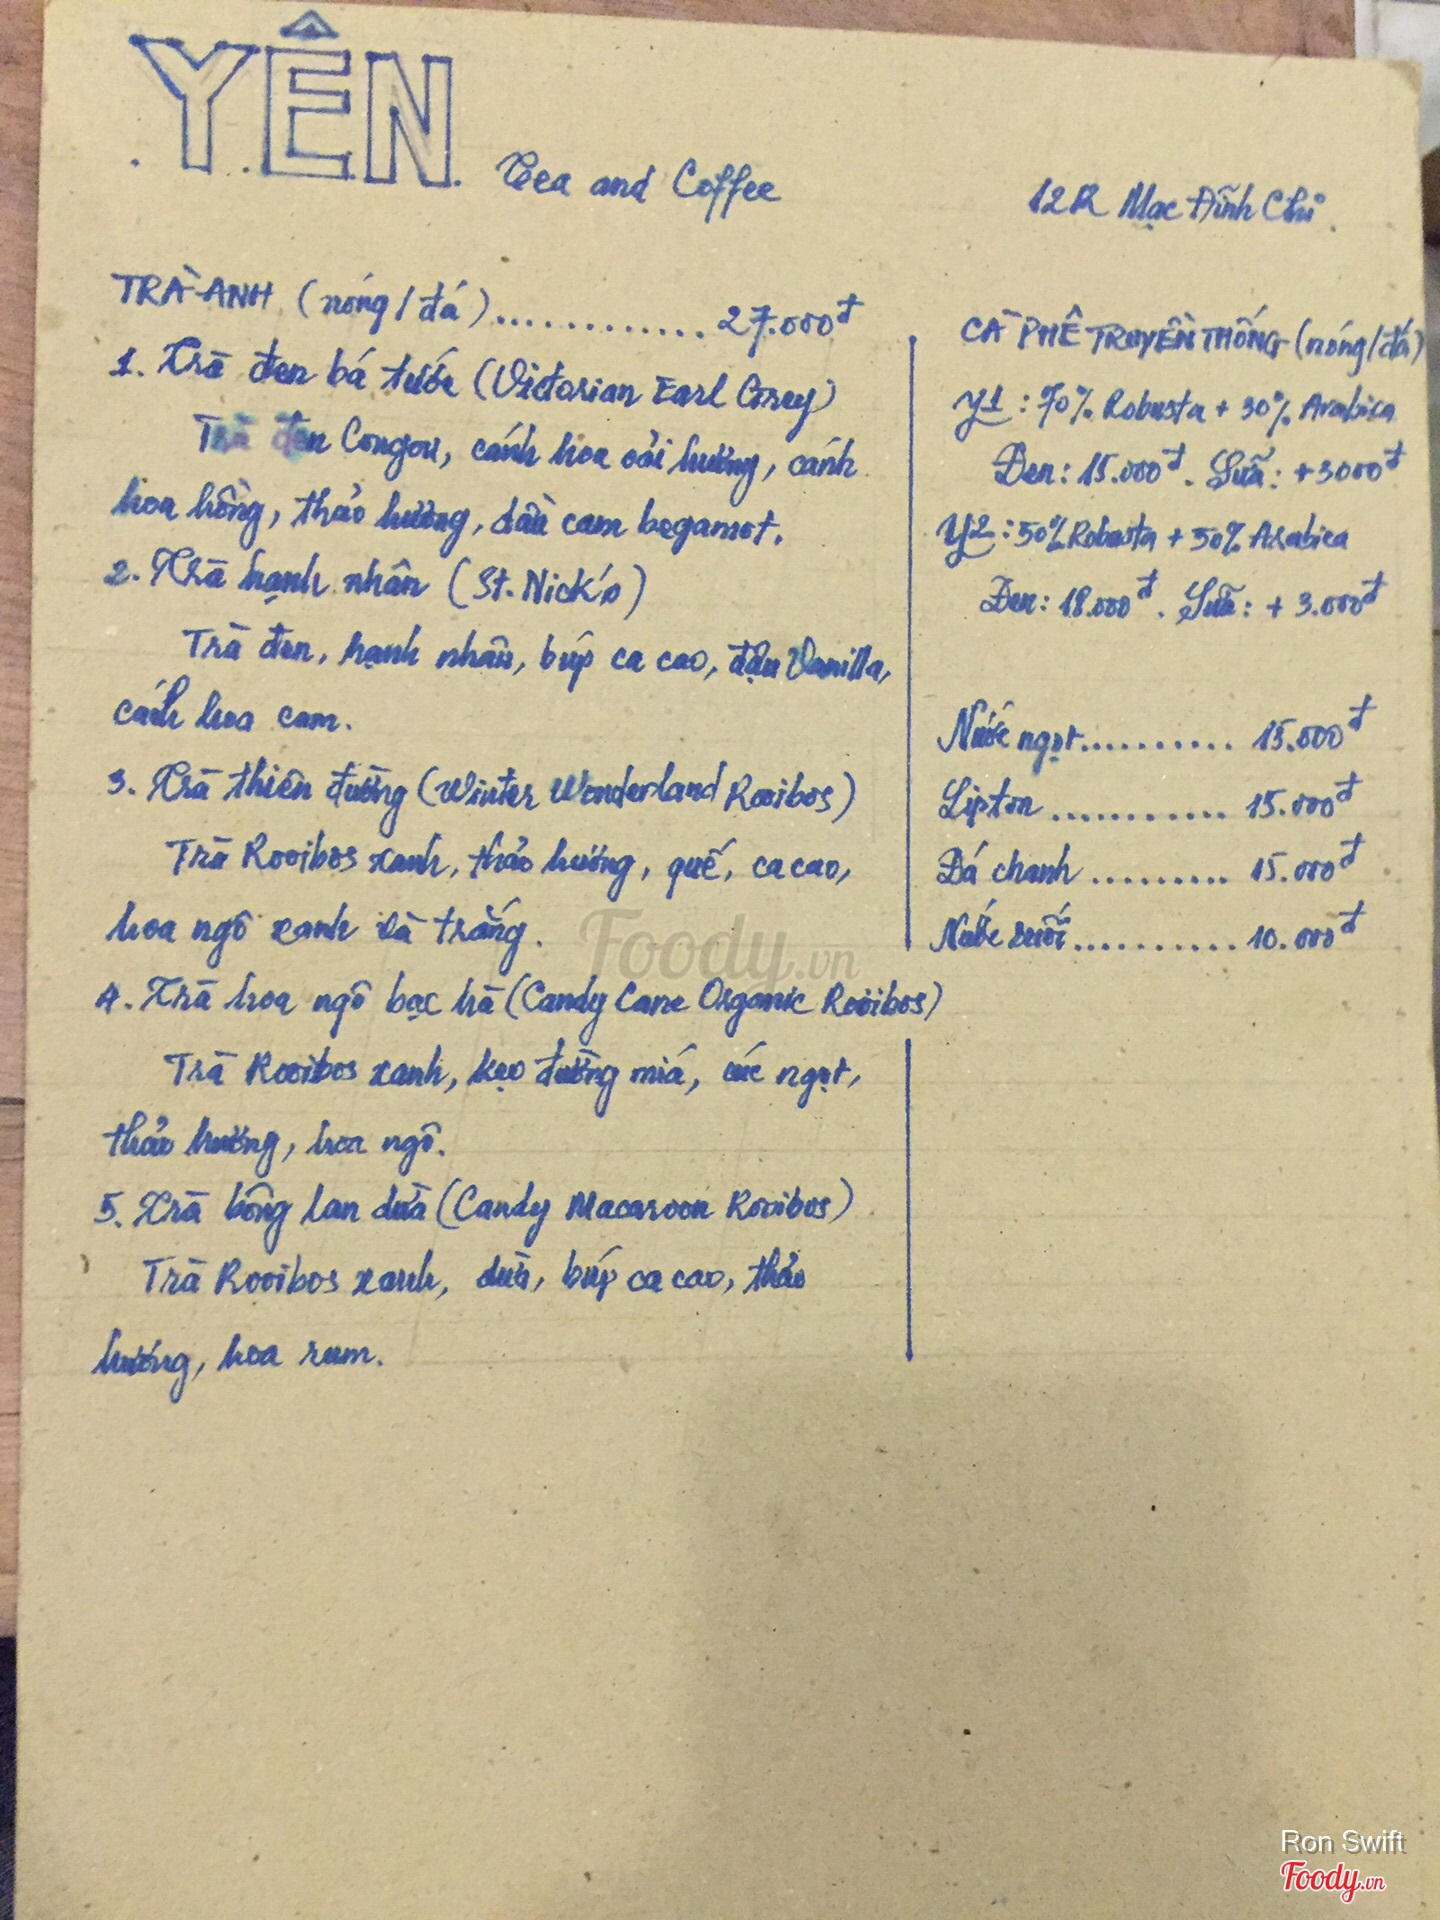 YÊN
Tea and Coffee
12R Mạc Đĩnh Chi.
TRÀ ANH (nóng/đá)............. 27.000đ
1. Trà đen bá tước (Victorian Earl Grey)
Trà đen Congou, cánh hoa oải hương, cánh
hoa hồng, thảo hương, dầu cam begamot.
2. Trà hạnh nhân (St. Nick's)
Trà đen, hạnh nhân, búp ca cao, đậu Vanilla,
cánh hoa cam.
3. Trà thiên đường (Winter Wonderland Rooibos)
Trà Rooibos xanh, thảo hương, quế, ca cao,
hoa ngô xanh và trắng.
4. Trà hoa ngô bạc hà (Candy Cane Organic Rooibos)
Trà Rooibos xanh, kẹo đường mía, cúc ngọt,
thảo hương, hoa ngô.
5. Trà bông lan dừa (Candy Macaroon Rooibos)
Trà Rooibos xanh, dừa, búp ca cao, thảo
hương, hoa rum.
CÀ PHÊ TRUYỀN THỐNG (nóng/đá)
Y1: 70% Robusta + 30% Arabica
Đen: 15.000đ. Sữa: +3000đ
Y2: 50% Robusta + 50% Arabica
Đen: 18.000đ. Sữa: + 3.000đ
Nước ngọt........... 15.000đ
Lipton ............ 15.000đ
Đá chanh .......... 15.000đ
Nước suối........... 10.000đ
Foody.vn
Ron Swift
Foody.vn